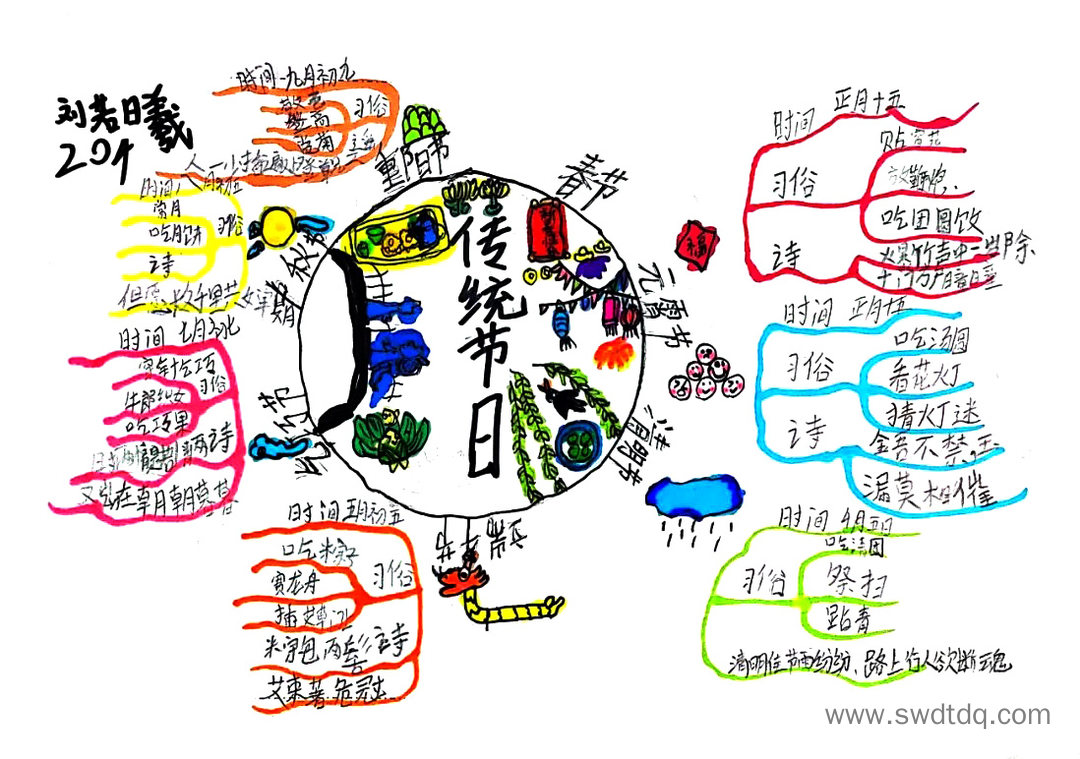 刘若曦
204
传统节日
春节
时间 正月十五
习俗
贴窗花
放鞭炮
吃团圆饭
诗
火暴竹声中一岁除
千门万户曈日
元宵节
时间 正月十五
习俗
吃汤圆
看花火丁
猜火丁迷
诗
金吾不禁
漏莫相催
清明节
时间 4月5日
习俗
吃清团
祭扫
踏青
清明佳节雨纷纷、路上行人欲断魂
端午节
时间 五月初五
习俗
吃粽子
赛龙舟
插艾草
诗
米宗包两髻
艾束著危冠
七夕节
时间 七月初七
习俗
穿针乞巧
牛郎织女
吃巧果
诗
又岂在朝朝暮暮
中秋节
时间八月十五
习俗
赏月
吃月饼
诗
重阳节
时间 九月初九
习俗
登高
赏菊
福
www.swdtdq.com